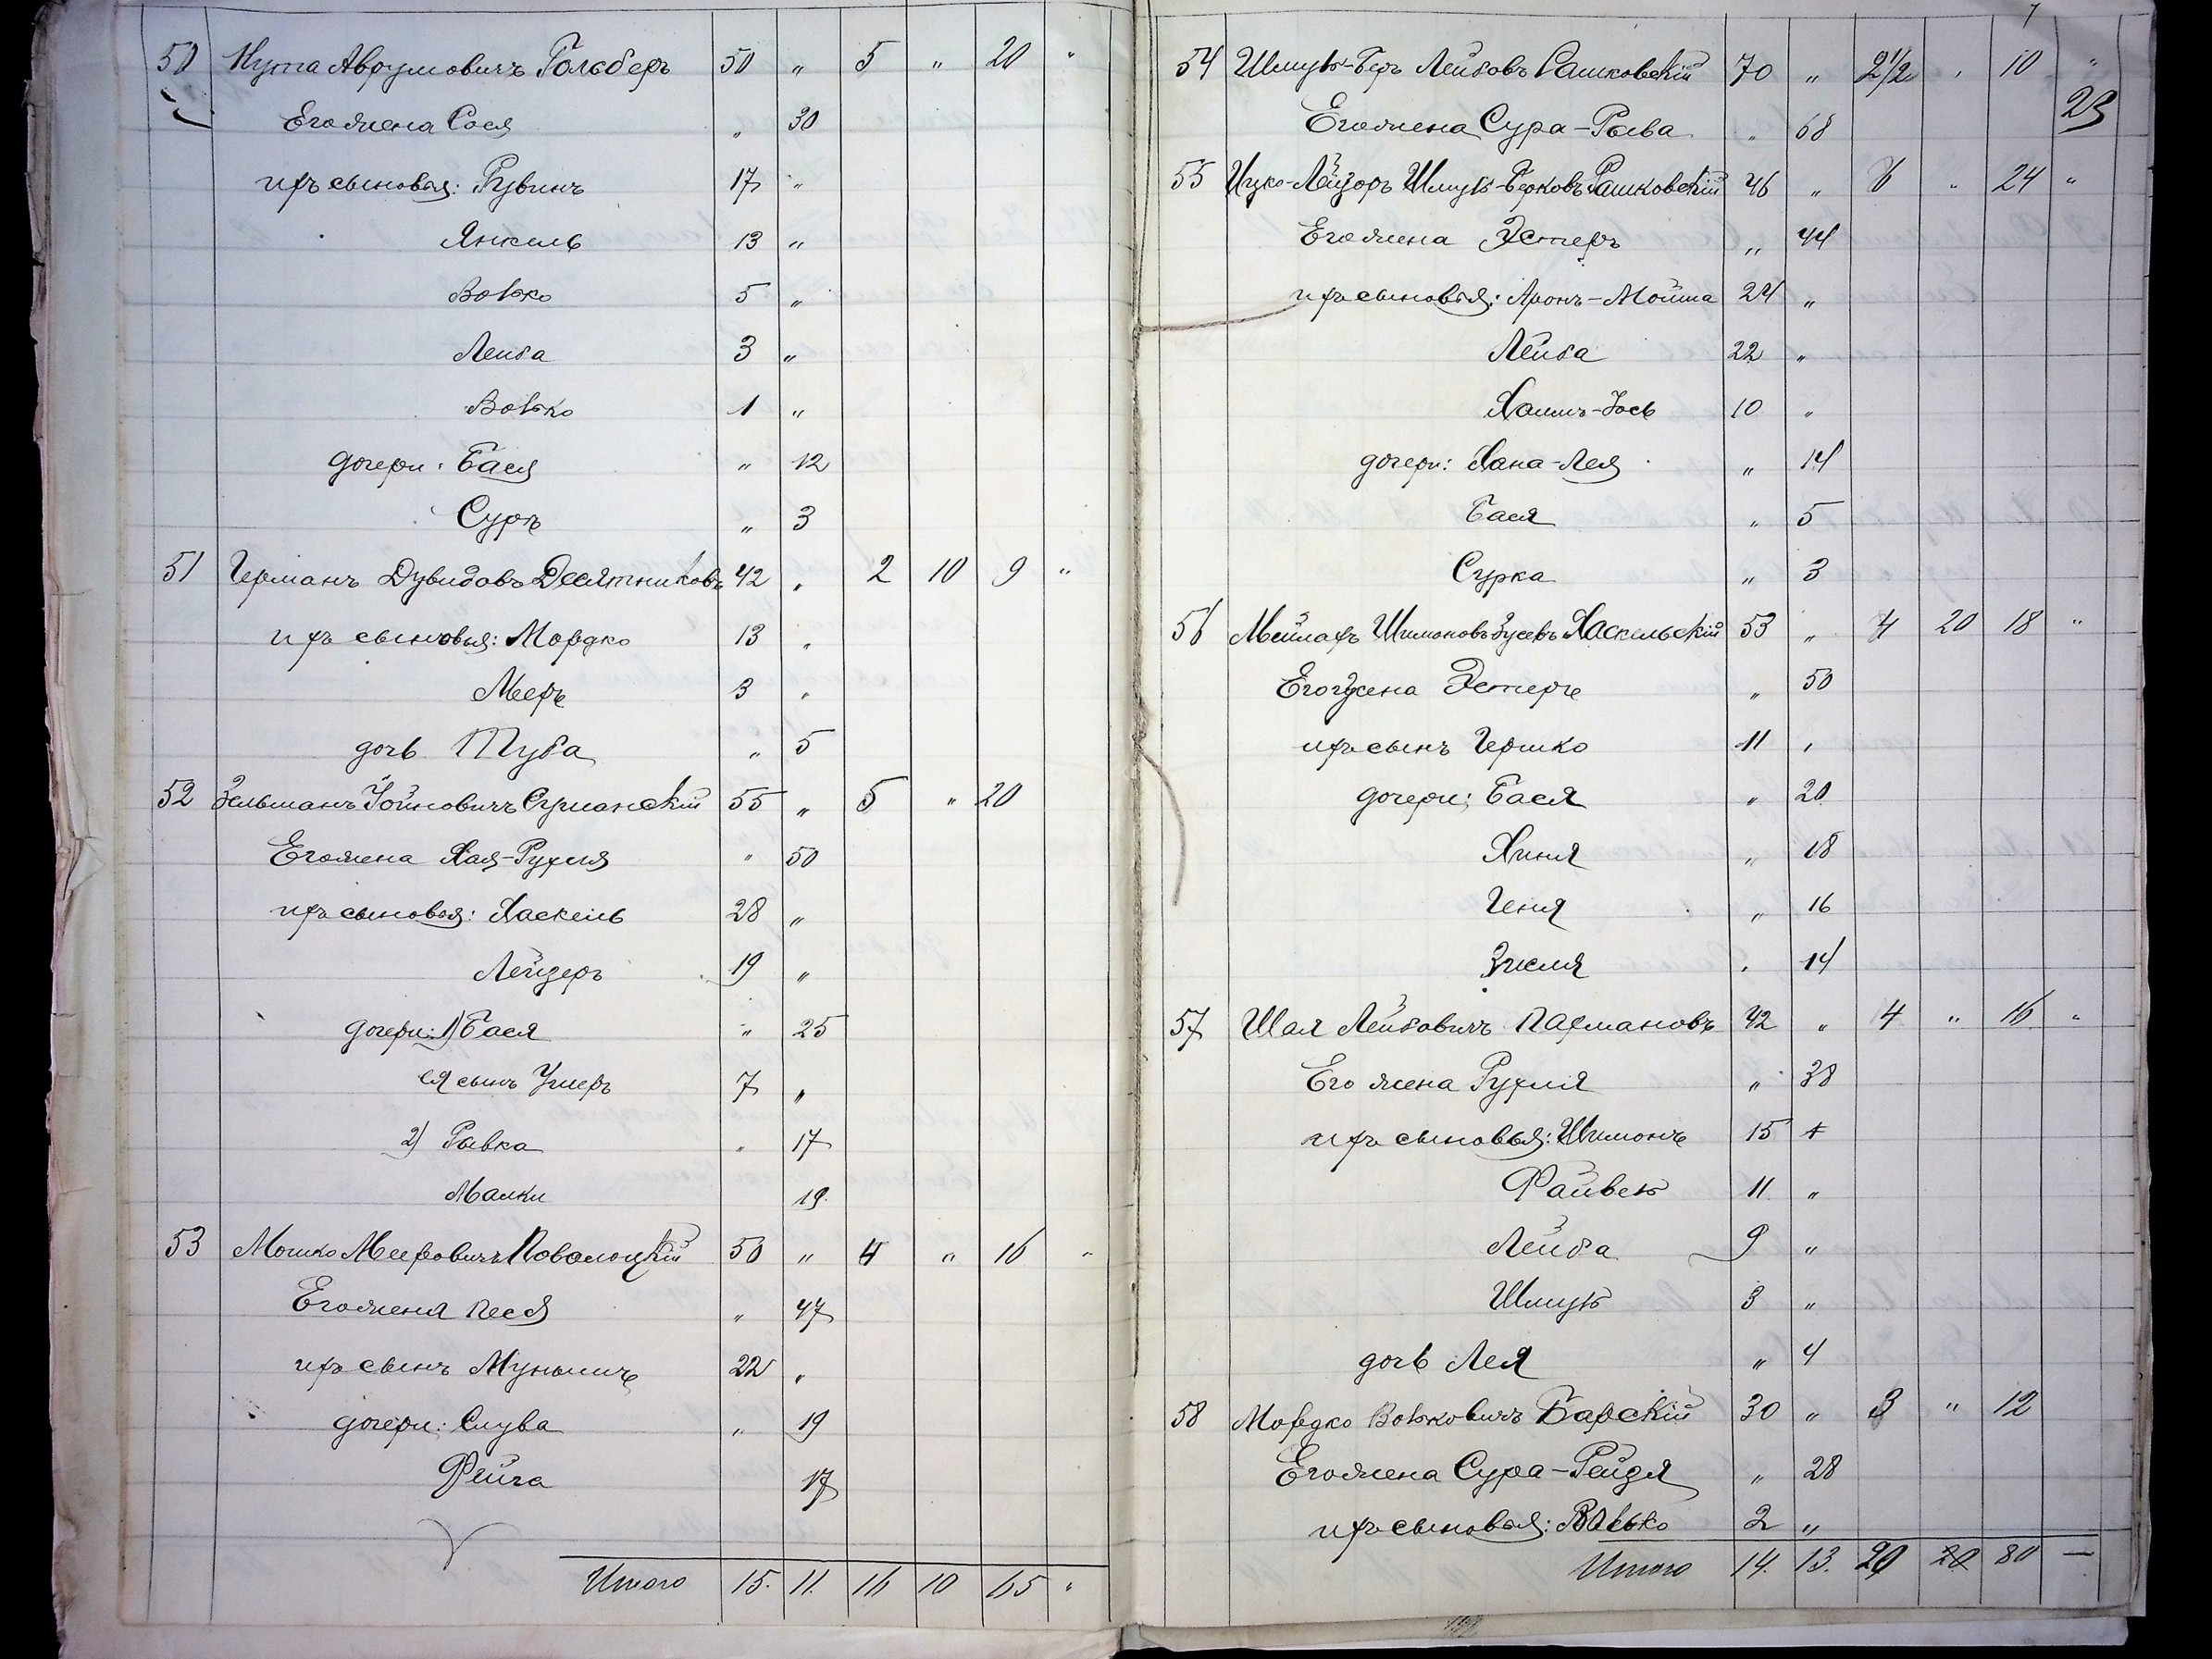 50 Нута Аврумовичъ Гольберъ 50 " 5 " 20 "
Его жена Сося " 30
ихъ сыновья: Рувинъ 17 "
Янкель 13 "
Волько 5 "
Лейба 3 "
Волько 1 "
дочери: Бася " 12
Суръ " 3
51 Германъ Дувидовъ Десятниковъ 42 " 2 10 9 "
ихъ сыновья: Мордко 13 "
Мееръ 3 "
дочь Туба " 5
52 Зельманъ Іойновичъ Суманскій 55 " 5 " 20
Его жена Хая-Рухля " 50
ихъ сыновья: Хаскель 28 "
Лейзеръ 19 "
дочери: 1) Бася " 25
ея сынъ Ушеръ 7 "
2) Рывка " 17
Малки 19
53 Мошко Мееровичъ Поволоцкій 50 " 4 " 16 "
Его жена Песя " 47
ихъ сынъ Мунышъ 22 "
дочери: Слува " 19
Фейга 17
Итого 15. 11. 16 10 65 "
7
54 Шмуль-Беръ Лейбовъ Рашковскій 70 " 2½ " 10 "
23
Его жена Сура-Рыва " 68
55 Ицко-Лейзоръ Шмуль-Берковъ Рашковскій 46 " 6 " 24 "
Его жена Эстеръ " 44
ихъ сыновья: Аронъ-Мойша 24 "
Лейба 22 "
Хаимъ-Іось 10 "
дочери: Хана-Лея " 14
Бася " 5
Сурка " 3
56 Мейлахъ Шимоновъ Зусевъ Хаскельскій 53 " 4 20 18 "
Его жена Эстеръ " 50
ихъ сынъ Гершко 11 "
дочери: Бася " 20
Хиня " 18
Геня " 16
Зисля " 14
57 Шая Лейбовичъ Пасмановъ 42 " 4 " 16 "
Его жена Рухля " 38
ихъ сыновья: Шимонъ 15 "
Файвель 11 "
Лейба 9 "
Шмуль 3 "
дочь Лея " 4
58 Мордко Вольковичъ Барскій 30 " 3 " 12
Его жена Сура-Рейзя " 28
ихъ сыновья: Волько 2 "
Итого 14. 13. 20 20 80 —